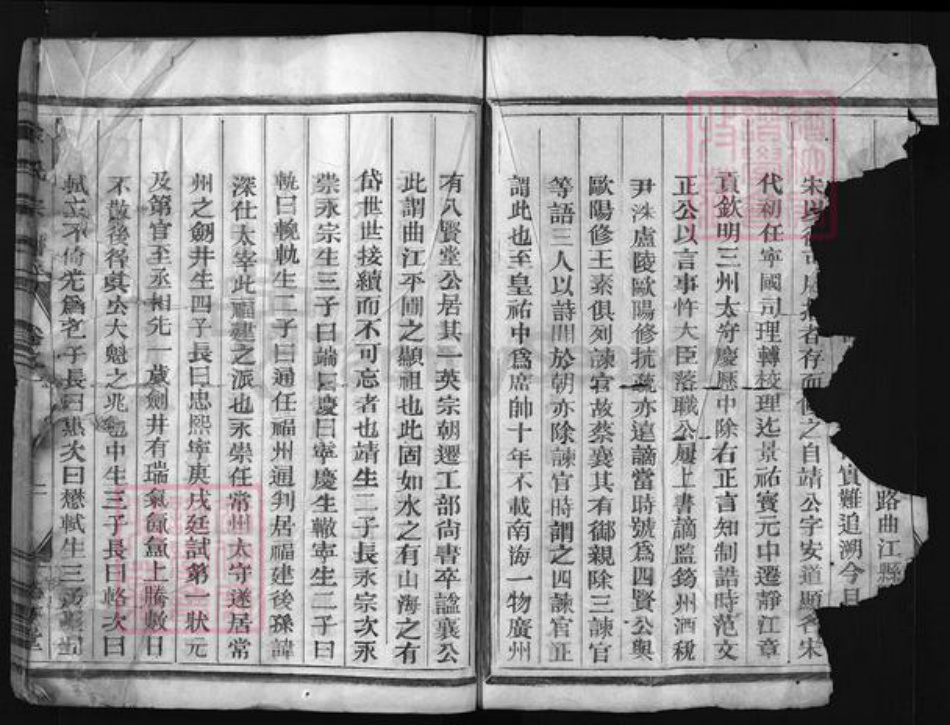 路曲江縣
實難追溯今自
宋以 者存而 之自靖公字安道顯名宋
代初任寧國司理轉校理迄景祐寶元中遷靜江章
貢欽明三州太守慶歷中除右正言知制誥時范文
正公以言事忤大臣落職公履上書謫監筠州酒稅
尹洙盧陵歐陽修抗疏亦遠謫當時號為四賢公與
歐陽修王素俱列諫官故蔡襄其有御親除三諫官
等語三人以詩聞於朝亦除諫官時謂之四諫官正
謂此也至皇祐中為席帥十年不載南海一物廣州
有八賢堂公居其一英宗朝遷工部尚書卒諡襄公
此謂曲江平圃之顯祖也此固如水之有山海之有
岱世世接續而不可忘者也靖生二子長永宗次永
崇永宗生三子曰端曰慶曰寧慶生轍寧生二子曰
軏曰輗軏生二子曰通任福州通判居福建後孫諱
深仕太宰此福建之派也永崇任常州太守遂居常
州之劒井生四子長曰忠熙寧庚戌廷試第一狀元
及第官至丞相先一歲劒井有瑞氣氤氳上騰數日
不散後符 大魁之兆 中生三子長曰輅次曰
軾立不倚 子長曰 次曰懋軾生三子